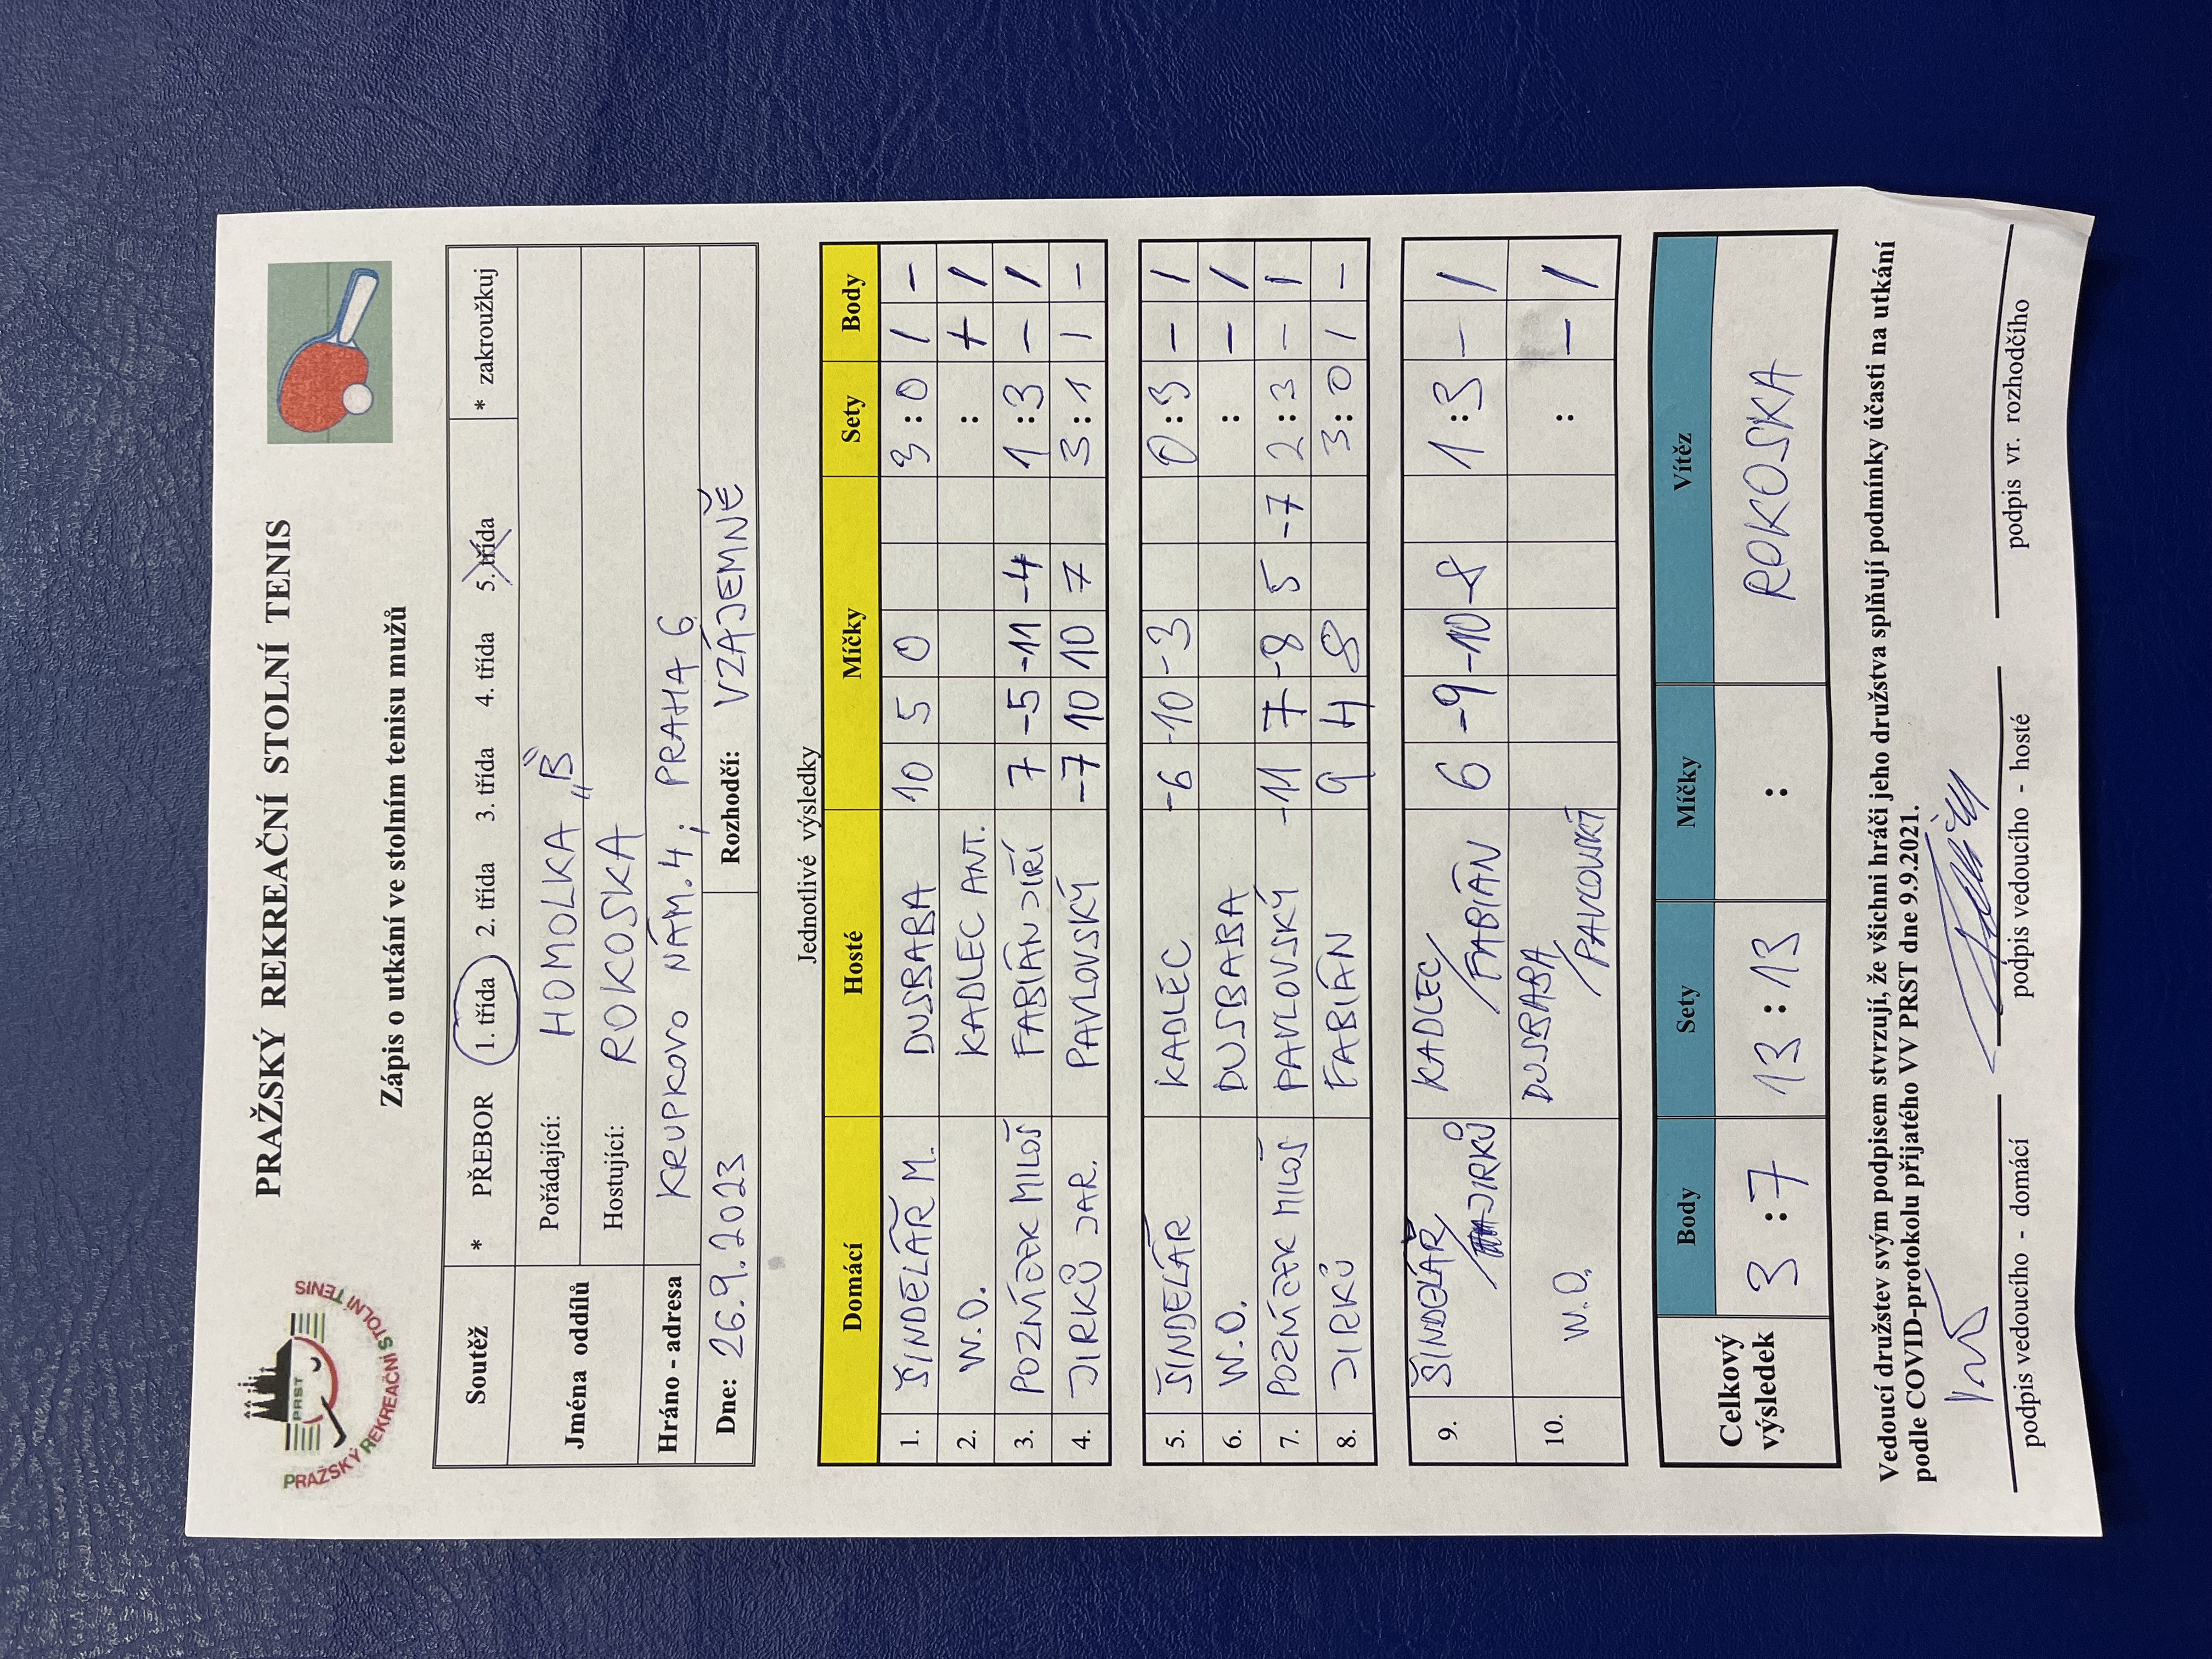 PRAŽSKÝ REKREAČNÍ STOLNÍ TENIS
PRST
PRAŽSKÝ REKREAČNÍ STOLNÍ TENIS
Zápis o utkání ve stolním tenisu mužů
Soutěž * PŘEBOR 1. třída 2. třída 3. třída 4. třída 5. třída * zakroužkuj
Jména oddílů Pořádající: HOMOLKA „B"
Hostující: ROKOSKA
Hráno - adresa KRUPKOVO NÁM. 4; PRAHA 6
Dne: 26.9.2023 Rozhodčí: VZÁJEMNĚ
Jednotlivé výsledky
Domácí Hosté Míčky Sety Body
1. ŠINDELÁŘ M. DUSBABA 10 5 0 3:0 1 -
2. W.O. KADLEC ANT. : + 1
3. POZNÍČEK MILOŠ FABIÁN JIŘÍ 7 -5 -11 -4 1:3 - 1
4. JIRKŮ JAR. PAVLOVSKÝ -7 10 10 7 3:1 1 -
5. ŠINDELÁŘ KADLEC -6 -10 -3 0:3 - 1
6. W.O. DUSBABA : - 1
7. POZNÍČEK MILOŠ PAVLOVSKÝ -11 7 -8 5 -7 2:3 - 1
8. JIRKŮ FABIÁN 9 4 8 3:0 1 -
9. ŠINDELÁŘ/JIRKŮ KADLEC/FABIÁN 6 -9 -10 -8 1:3 - 1
10. W.O. DUSBABA/PAVLOVSKÝ : - 1
Celkový výsledek Body Sety Míčky Vítěz
3:7 13:13 : ROKOSKA
Vedoucí družstev svým podpisem stvrzují, že všichni hráči jeho družstva splňují podmínky účasti na utkání
podle COVID-protokolu přijatého VV PRST dne 9.9.2021.
podpis vedoucího - domácí podpis vedoucího - hosté podpis vr. rozhodčího